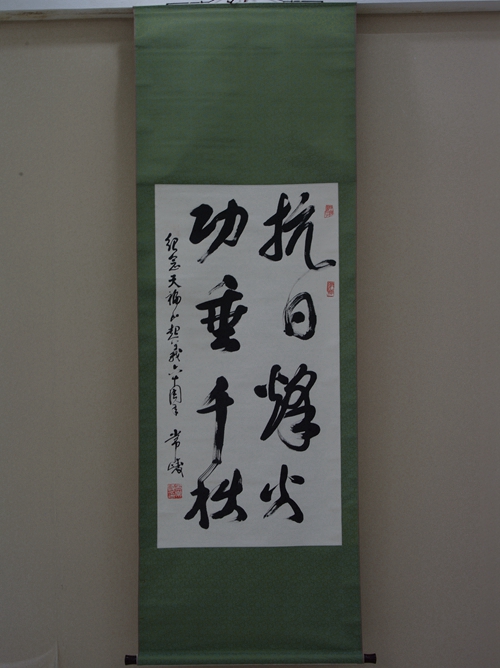 抗日烽火
功垂千秋
紀念天福山起義六十周年 常峻